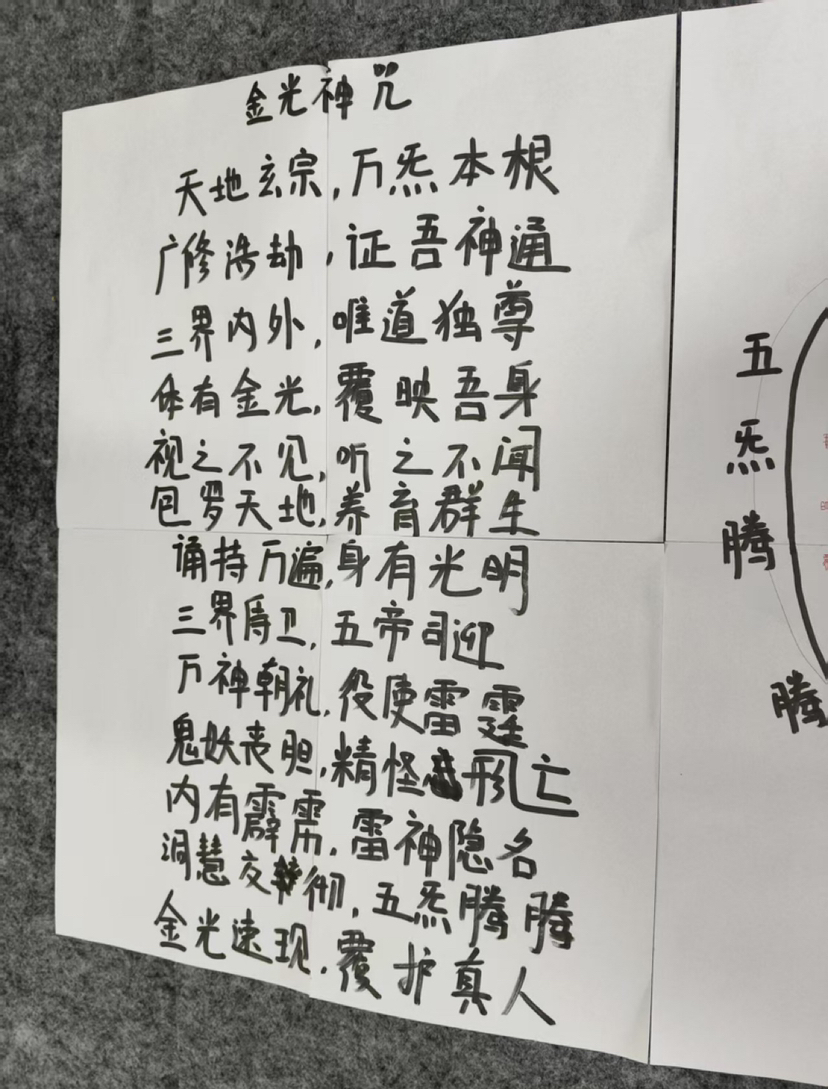 金光神咒
天地玄宗,万炁本根
广修浩劫,证吾神通
三界内外,唯道独尊
体有金光,覆映吾身
视之不见,听之不闻
包罗天地,养育群生
诵持万遍,身有光明
三界侍卫,五帝司迎
万神朝礼,役使雷霆
鬼妖丧胆,精怪形亡
内有霹雳,雷神隐名
洞慧交彻,五炁腾腾
金光速现,覆护真人
五炁腾
腾